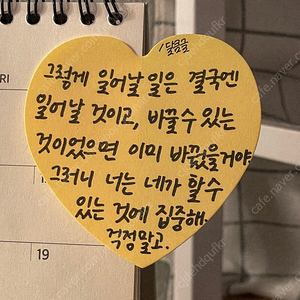 /달큼글
그렇게 일어날 일은 결국엔
일어날 것이고, 바꿀수 있는
것이었으면 이미 바꿨을거야
그러니 너는 네가 할 수
있는 것에 집중해.
걱정말고.
RI
12
19